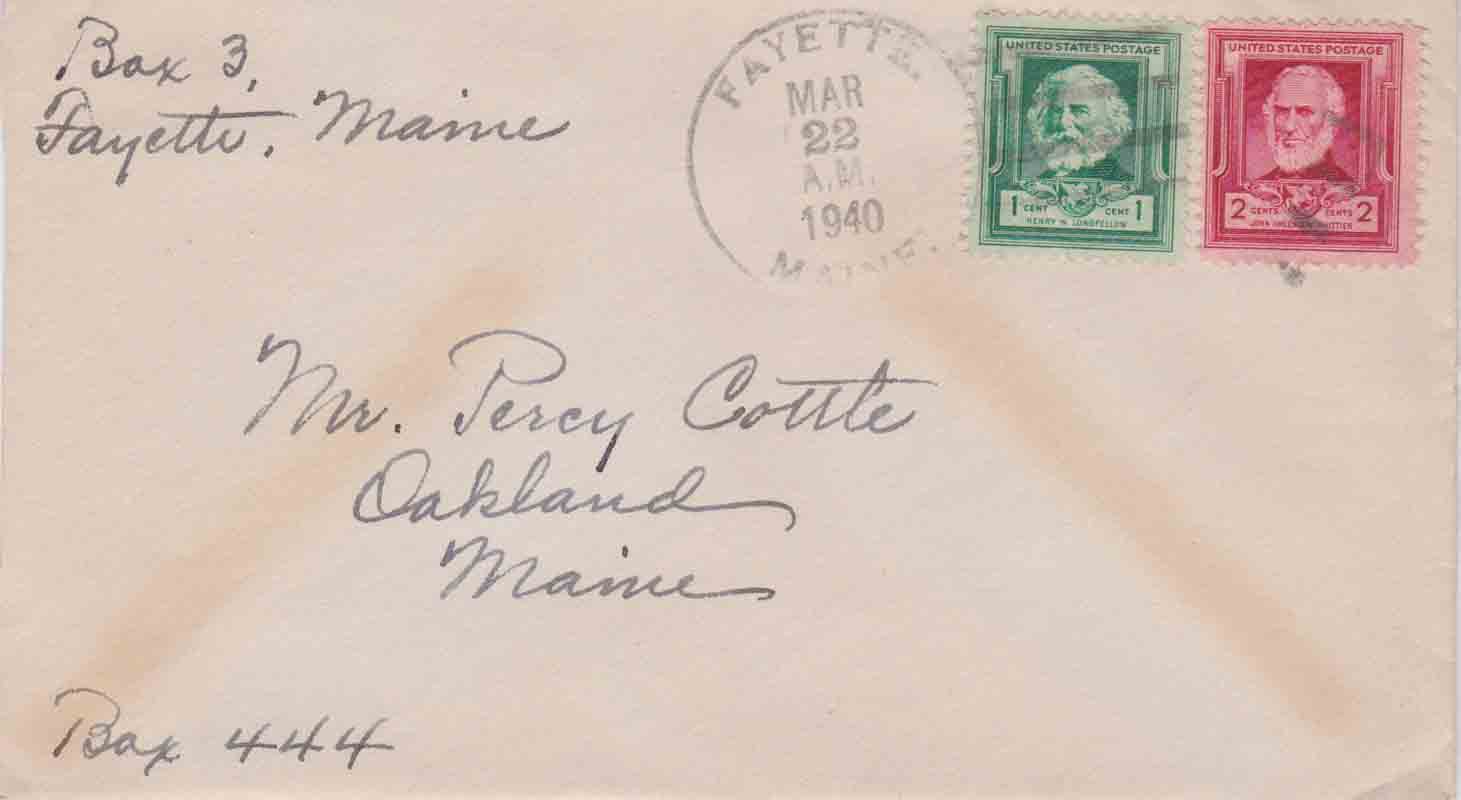 Box 3,
Fayette, Maine
FAYETTE.
MAR
22
A.M.
1940
MAINE.
UNITED STATES POSTAGE
1 CENT CENT 1
HENRY W. LONGFELLOW
UNITED STATES POSTAGE
2 CENTS CENTS 2
JOHN GREENLEAF WHITTIER
Mr. Percy Cottle
Oakland
Maine
Box 444